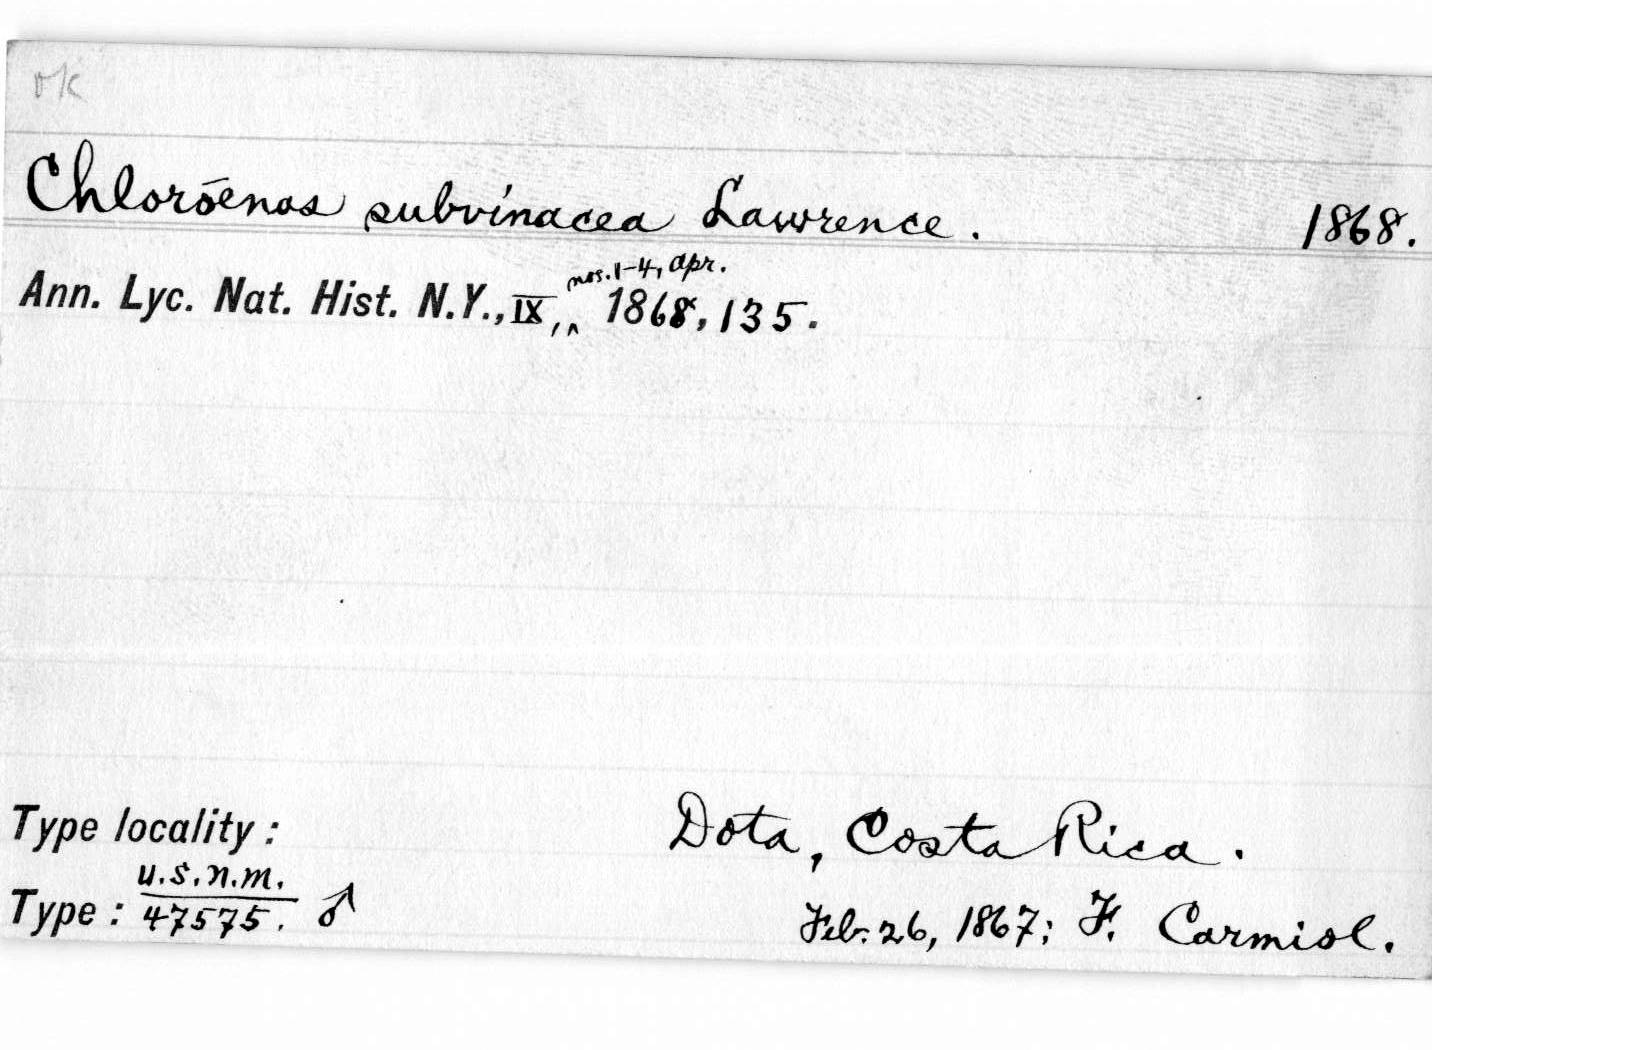 ok
Chlorōenas subvinacea Lawrence. 1868.
nos. 1-4, Apr.
Ann. Lyc. Nat. Hist. N.Y., IX, ^ 1868, 135.
Type locality: Dota, Costa Rica.
U.S.N.M.
Type: 47575. ♂ Feb. 26, 1867; F. Carmiol.